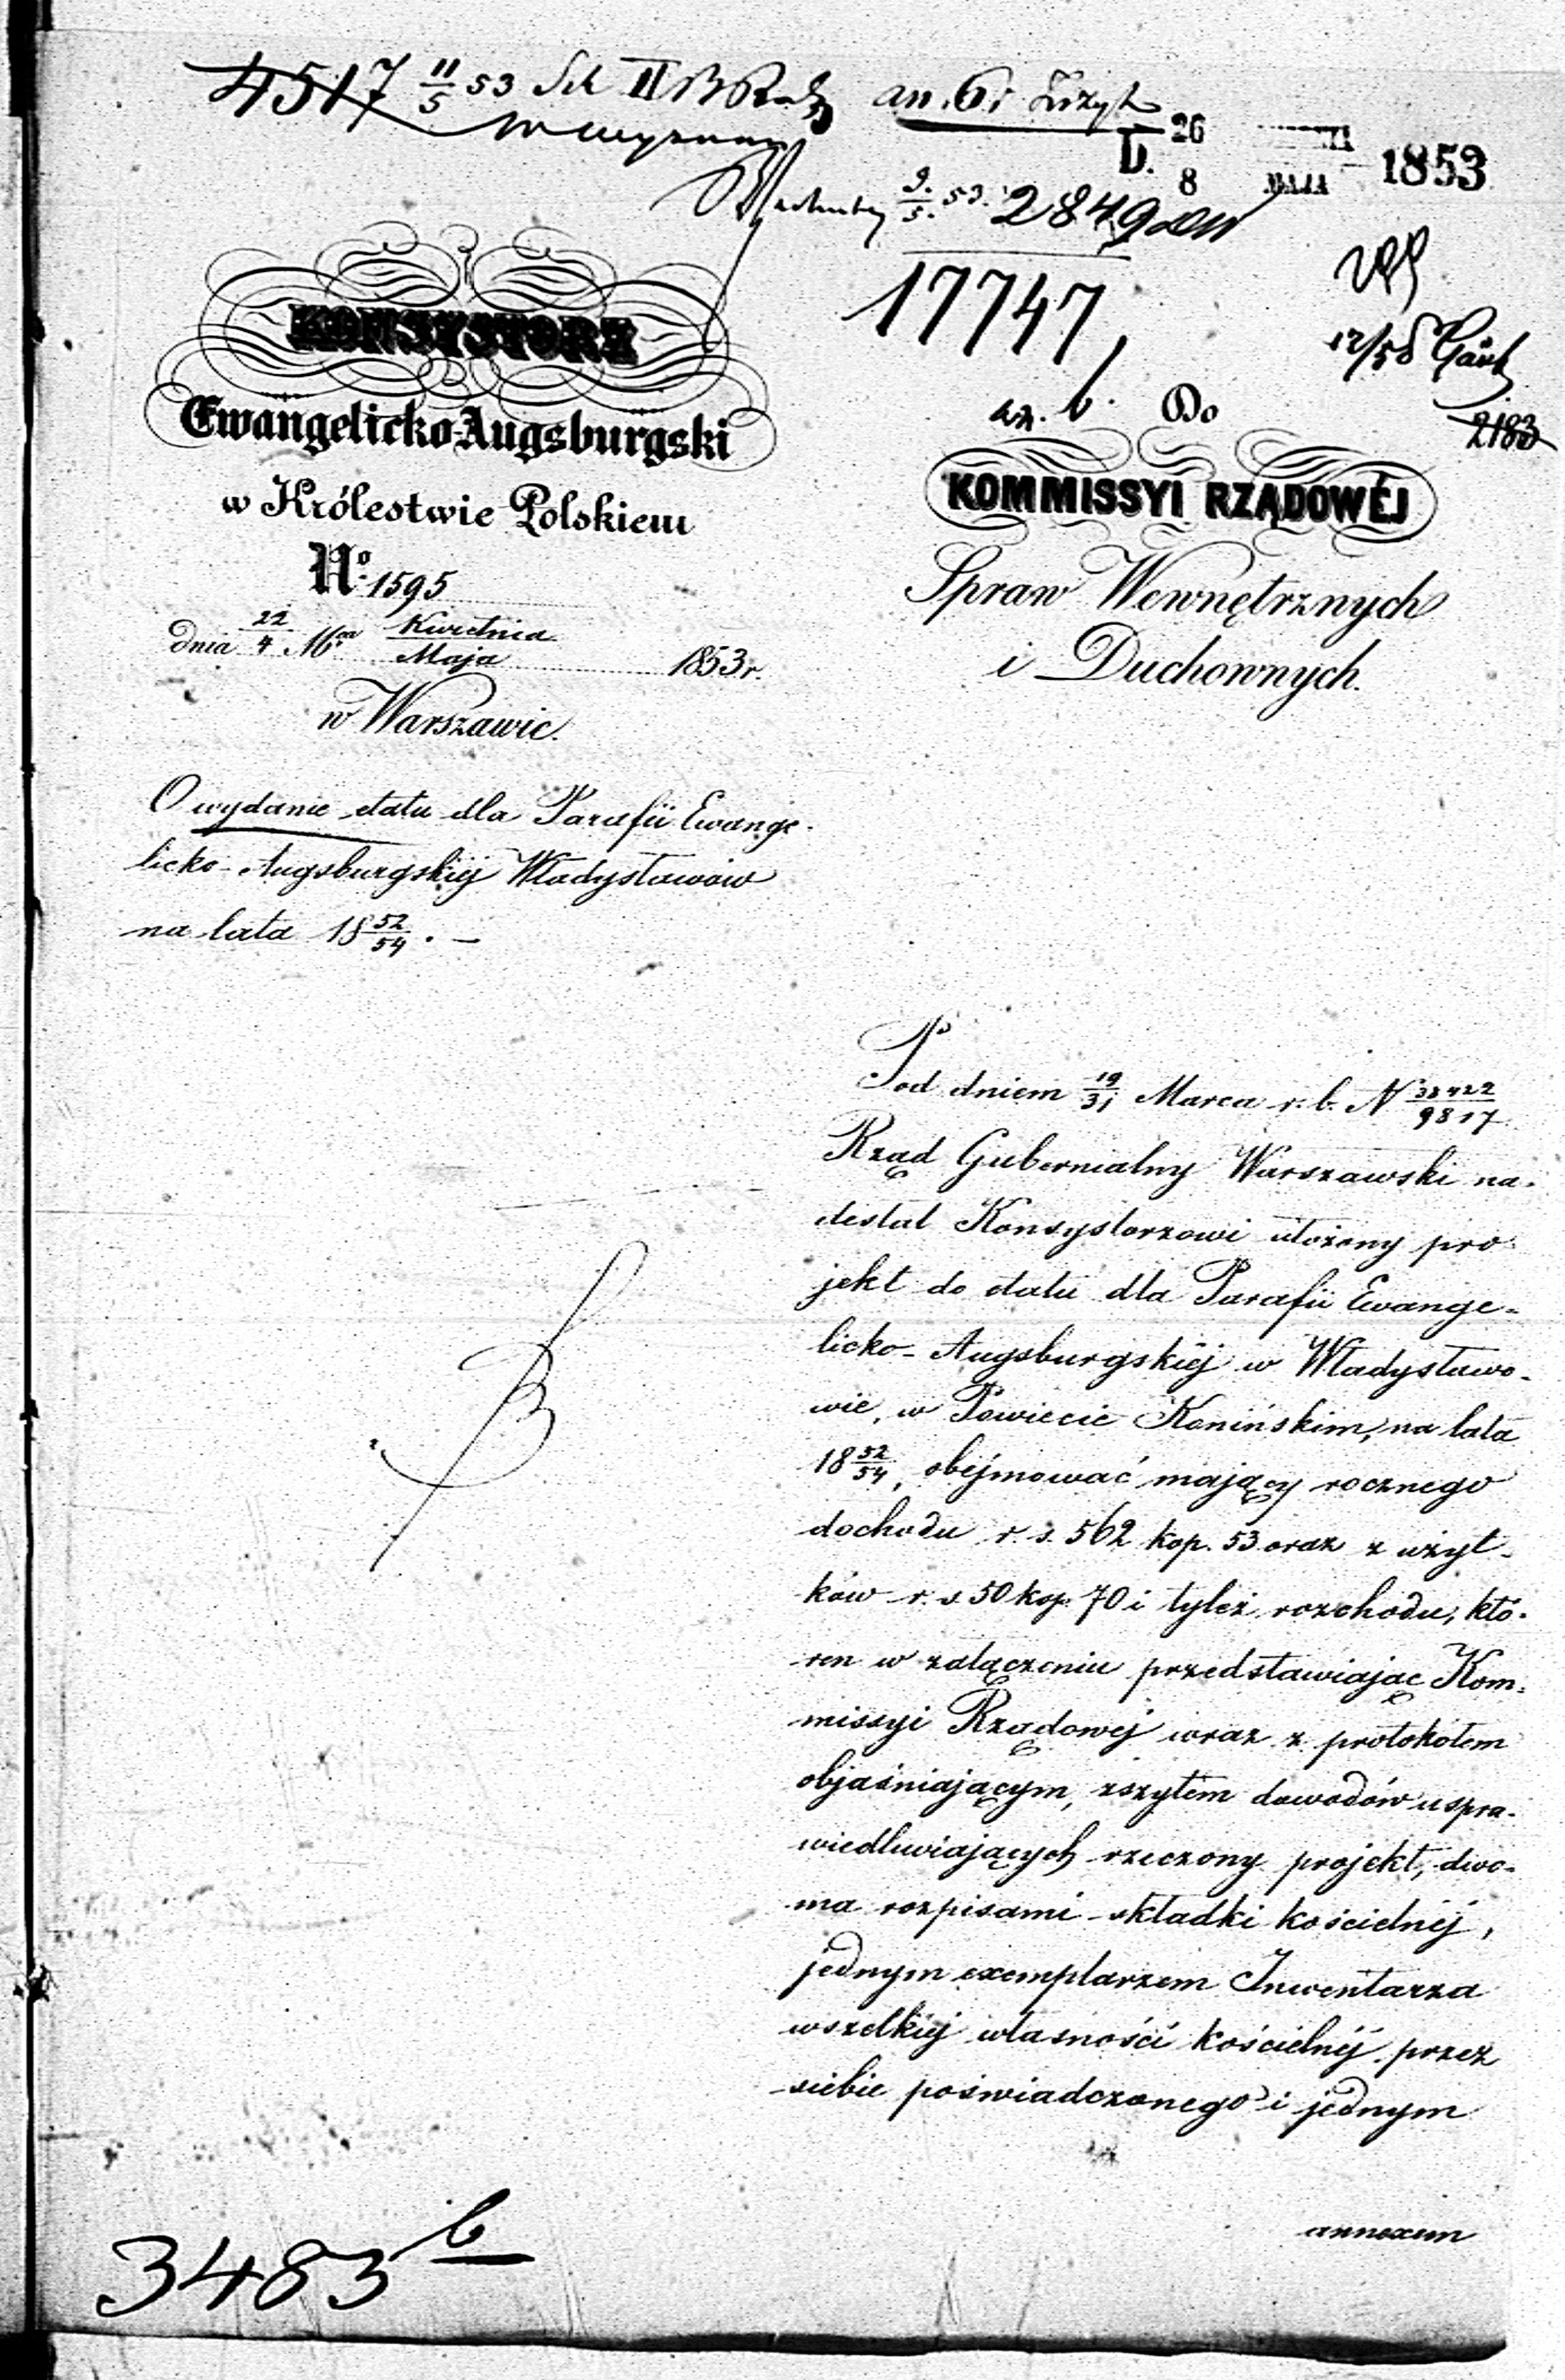 4517 11/5 53 II
an. 6
D. 26
8 MAJA 1853
9/5. 53. 2849
17747
12/58
2183
az. b.
KONSYSTORZ
Ewangelicko-Augsburgski
w Królestwie Polskiem
No. 1595
dnia 22/4 Mca Kwietnia/Maja 1853 r.
w Warszawie.
O wydanie etatu dla Parafii Ewange-
licko-Augsburgskiéj Władysławów
na lata 18 52/54. —
Do
KOMMISSYI RZĄDOWÉJ
Spraw Wewnętrznych
i Duchownych.
Pod dniem 19/31 Marca r. b. N 38422/9817
Rząd Gubernialny Warszawski na-
desłał Konsystorzowi ułożony pro-
jekt do etatu dla Parafii Ewange-
licko-Augsburgskiéj w Władysławo-
wie, w Powiecie Konińskim, na lata
18 52/54, obejmować mający rocznego
dochodu r. s. 562 kop. 53 oraz z użyt-
ków r. s. 50 kop. 70 i tyleż rozchodu, któ-
ren w załączeniu przedstawiając Kom-
missyi Rządowéj wraz z protokołem
objaśniającym, zszytem dowodów uspra-
wiedliwiających rzeczony projekt, dwo-
ma rozpisami składki kościelnéj,
jednym exemplarzem Inwentarza
wszelkiéj własności kościelnéj przez
siebie poświadczonego i jednym
annexem
3483 b